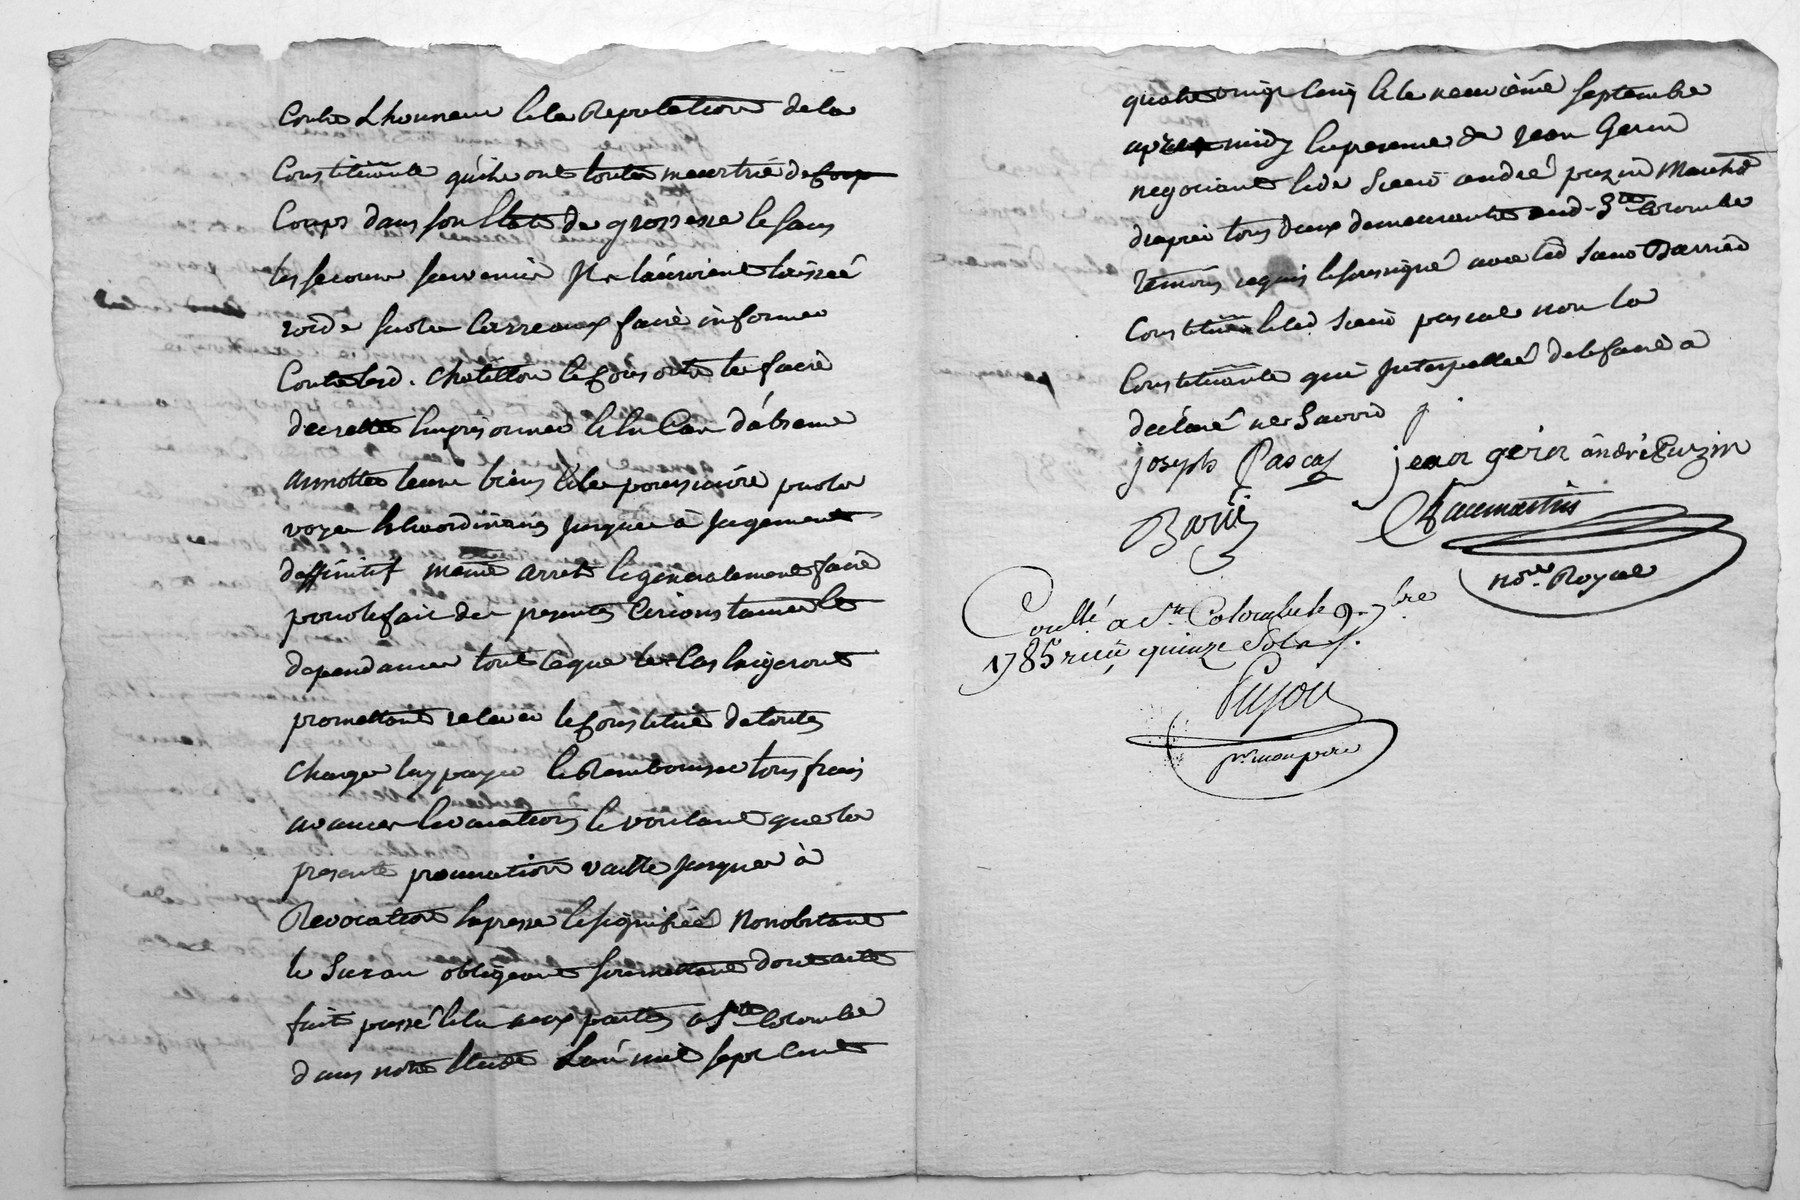 Contre Lhonneur et la Reputation de la
Constituante quils ont toutte meurtrie de coup
Coups dans son Etat de grossesse et sans
les secours survenus Ils lauroient laissée
roide sur le Carreaux faire informer
Contre lesd. Chatillon et Consorts les faire
decretter Emprisonner et En Cas dabsence
annotter leurs biens et les poursuivre par la
voye Extraordinaire jusques à jugement
deffinitif meme arret et generalement faire
pour le fait des presentes Circonstances et
dependances tout ce que le Cas Exigeront
promettant relever le Constitué de toutes
charges Luy payer et Rembourser tous frais
avances et vacations et voulant que la
presente procuration vaille jusques à
Revocation Expresse et signifiée Nonobstant
le Suran obligeant soumettant dont acte
fait passé et lu aux parties à Ste Colombe
dans notre Etude Lan mil sept cent
quatre vingt Cinq et le neuvième septembre
après midy En presence de jean Gerin
negociant et de Sieur andré puzin Marchd
drapier tous deux demeurants aud. Ste Colombe
temoins requis et soussignés avec led Sieur Barrier
Constitué et led Sieur pascal non la
Constituante qui Interpellée de le faire a
declaré ne Savoir
joseph Pascal jean gerin andré Puzin
Barie
not.re Royal
Conllé a Ste Colombe le 9. 7bre
1785 reçu quinze Sols
Pujou
pr. mon pere